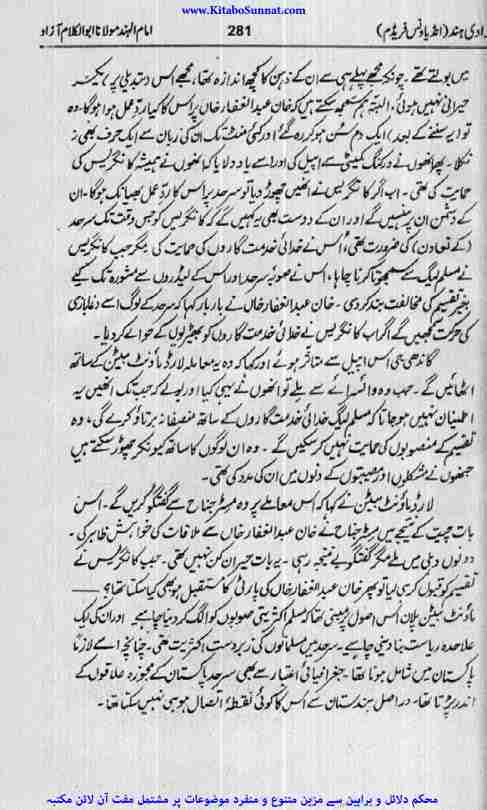 www.KitaboSunnat.com
امام الہند مولانا ابوالکلام آزاد
281
ادی ہند (انڈیا ونس فریڈم)
میں بولتے تھے۔ چونکہ مجھے پہلے ہی سے ان کے ذہن کا کچھ اندازہ تھا، مجھے اس (تبدیلی پر) یکسر
حیرانی نہیں ہوئی، البتہ ہم سمجھ سکتے ہیں کہ خان عبدالغفار خاں پر اس کا کیا ردِ عمل ہوا ہوگا۔ وہ
تو (یہ سننے کے بعد) ایک دم سُن ہو کر رہ گئے اور کئی منٹ تک ان کی زبان سے ایک حرف بھی نہ
نکلا۔ پھر انھوں نے ورکنگ کمیٹی سے اپیل کی اور اسے یاد دلایا کہ انھوں نے ہمیشہ کانگریس کی
حمایت کی تھی۔ اب اگر کانگریس نے انھیں چھوڑ دیا تو سرحد پر اس کا ردِ عمل بھیانک ہوگا۔ ان
کے دشمن ان پر ہنسیں گے اور ان کے دوست بھی یہ کہیں گے کہ کانگریس کو جس وقت تک سرحد
(کے تعاون) کی ضرورت تھی، اُس نے خدائی خدمت گاروں کی حمایت کی مگر جب کانگریس
نے مسلم لیگ سے سمجھوتا کرنا چاہا، اس نے صوبہ سرحد اور اس کے لیڈروں سے مشورہ تک کیے
بغیر تقسیم کی مخالفت بند کر دی۔ خان عبدالغفار خاں نے بار بار کہا کہ سرحد کے لوگ اسے دغا بازی
کی حرکت سمجھیں گے اگر اب کانگریس نے خدائی خدمت گاروں کو بھیڑیوں کے حوالے کر دیا۔
گاندھی جی اس اپیل سے متاثر ہوئے اور کہا کہ وہ یہ معاملہ لارڈ ماؤنٹ بیٹن کے ساتھ
اٹھائیں گے۔ جب وہ وائسرائے سے ملے تو انھوں نے یہی کیا اور بولے کہ جب تک انھیں یہ
اطمینان نہیں ہو جاتا کہ مسلم لیگ خدائی خدمت گاروں کے ساتھ منصفانہ برتاؤ کرے گی، وہ
تقسیم کے منصوبوں کی حمایت نہیں کر سکیں گے۔ وہ ان لوگوں کا ساتھ کیونکر چھوڑ سکتے ہیں
جنھوں نے مشکلوں اور مصیبتوں کے دنوں میں ان کی مدد کی تھی۔
لارڈ ماؤنٹ بیٹن نے کہا کہ اس معاملے پر وہ مسٹر جناح سے گفتگو کریں گے۔ اس
بات چیت کے نتیجے میں مسٹر جناح نے خان عبدالغفار خاں سے ملاقات کی خواہش ظاہر کی۔
دونوں دہلی میں ملے مگر گفتگو بے نتیجہ رہی۔ یہ بات حیران کن نہیں تھی۔ جب کانگریس نے
تقسیم کو قبول کر لیا تو پھر خان عبدالغفار خاں کی پارٹی کا مستقبل ہو بھی کیا سکتا تھا؟
ماؤنٹ بیٹن پلان اُس اصول پر مبنی تھا کہ مسلم اکثریتی صوبوں کو الگ کر دینا چاہیے اور ان کی ایک
علاحدہ ریاست بنا دینی چاہیے۔ سرحد میں مسلمانوں کی زبردست اکثریت تھی۔ چنانچہ اسے لازماً
پاکستان میں شامل ہونا تھا۔ جغرافیائی اعتبار سے بھی سرحد پاکستان کے مجوزہ علاقوں کے
اندر پڑتا تھا۔ دراصل ہندستان سے اس کا کوئی نقطۂ اتصال ہو ہی نہیں سکتا تھا۔
محکم دلائل و براہین سے مزین متنوع و منفرد موضوعات پر مشتمل مفت آن لائن مکتبہ